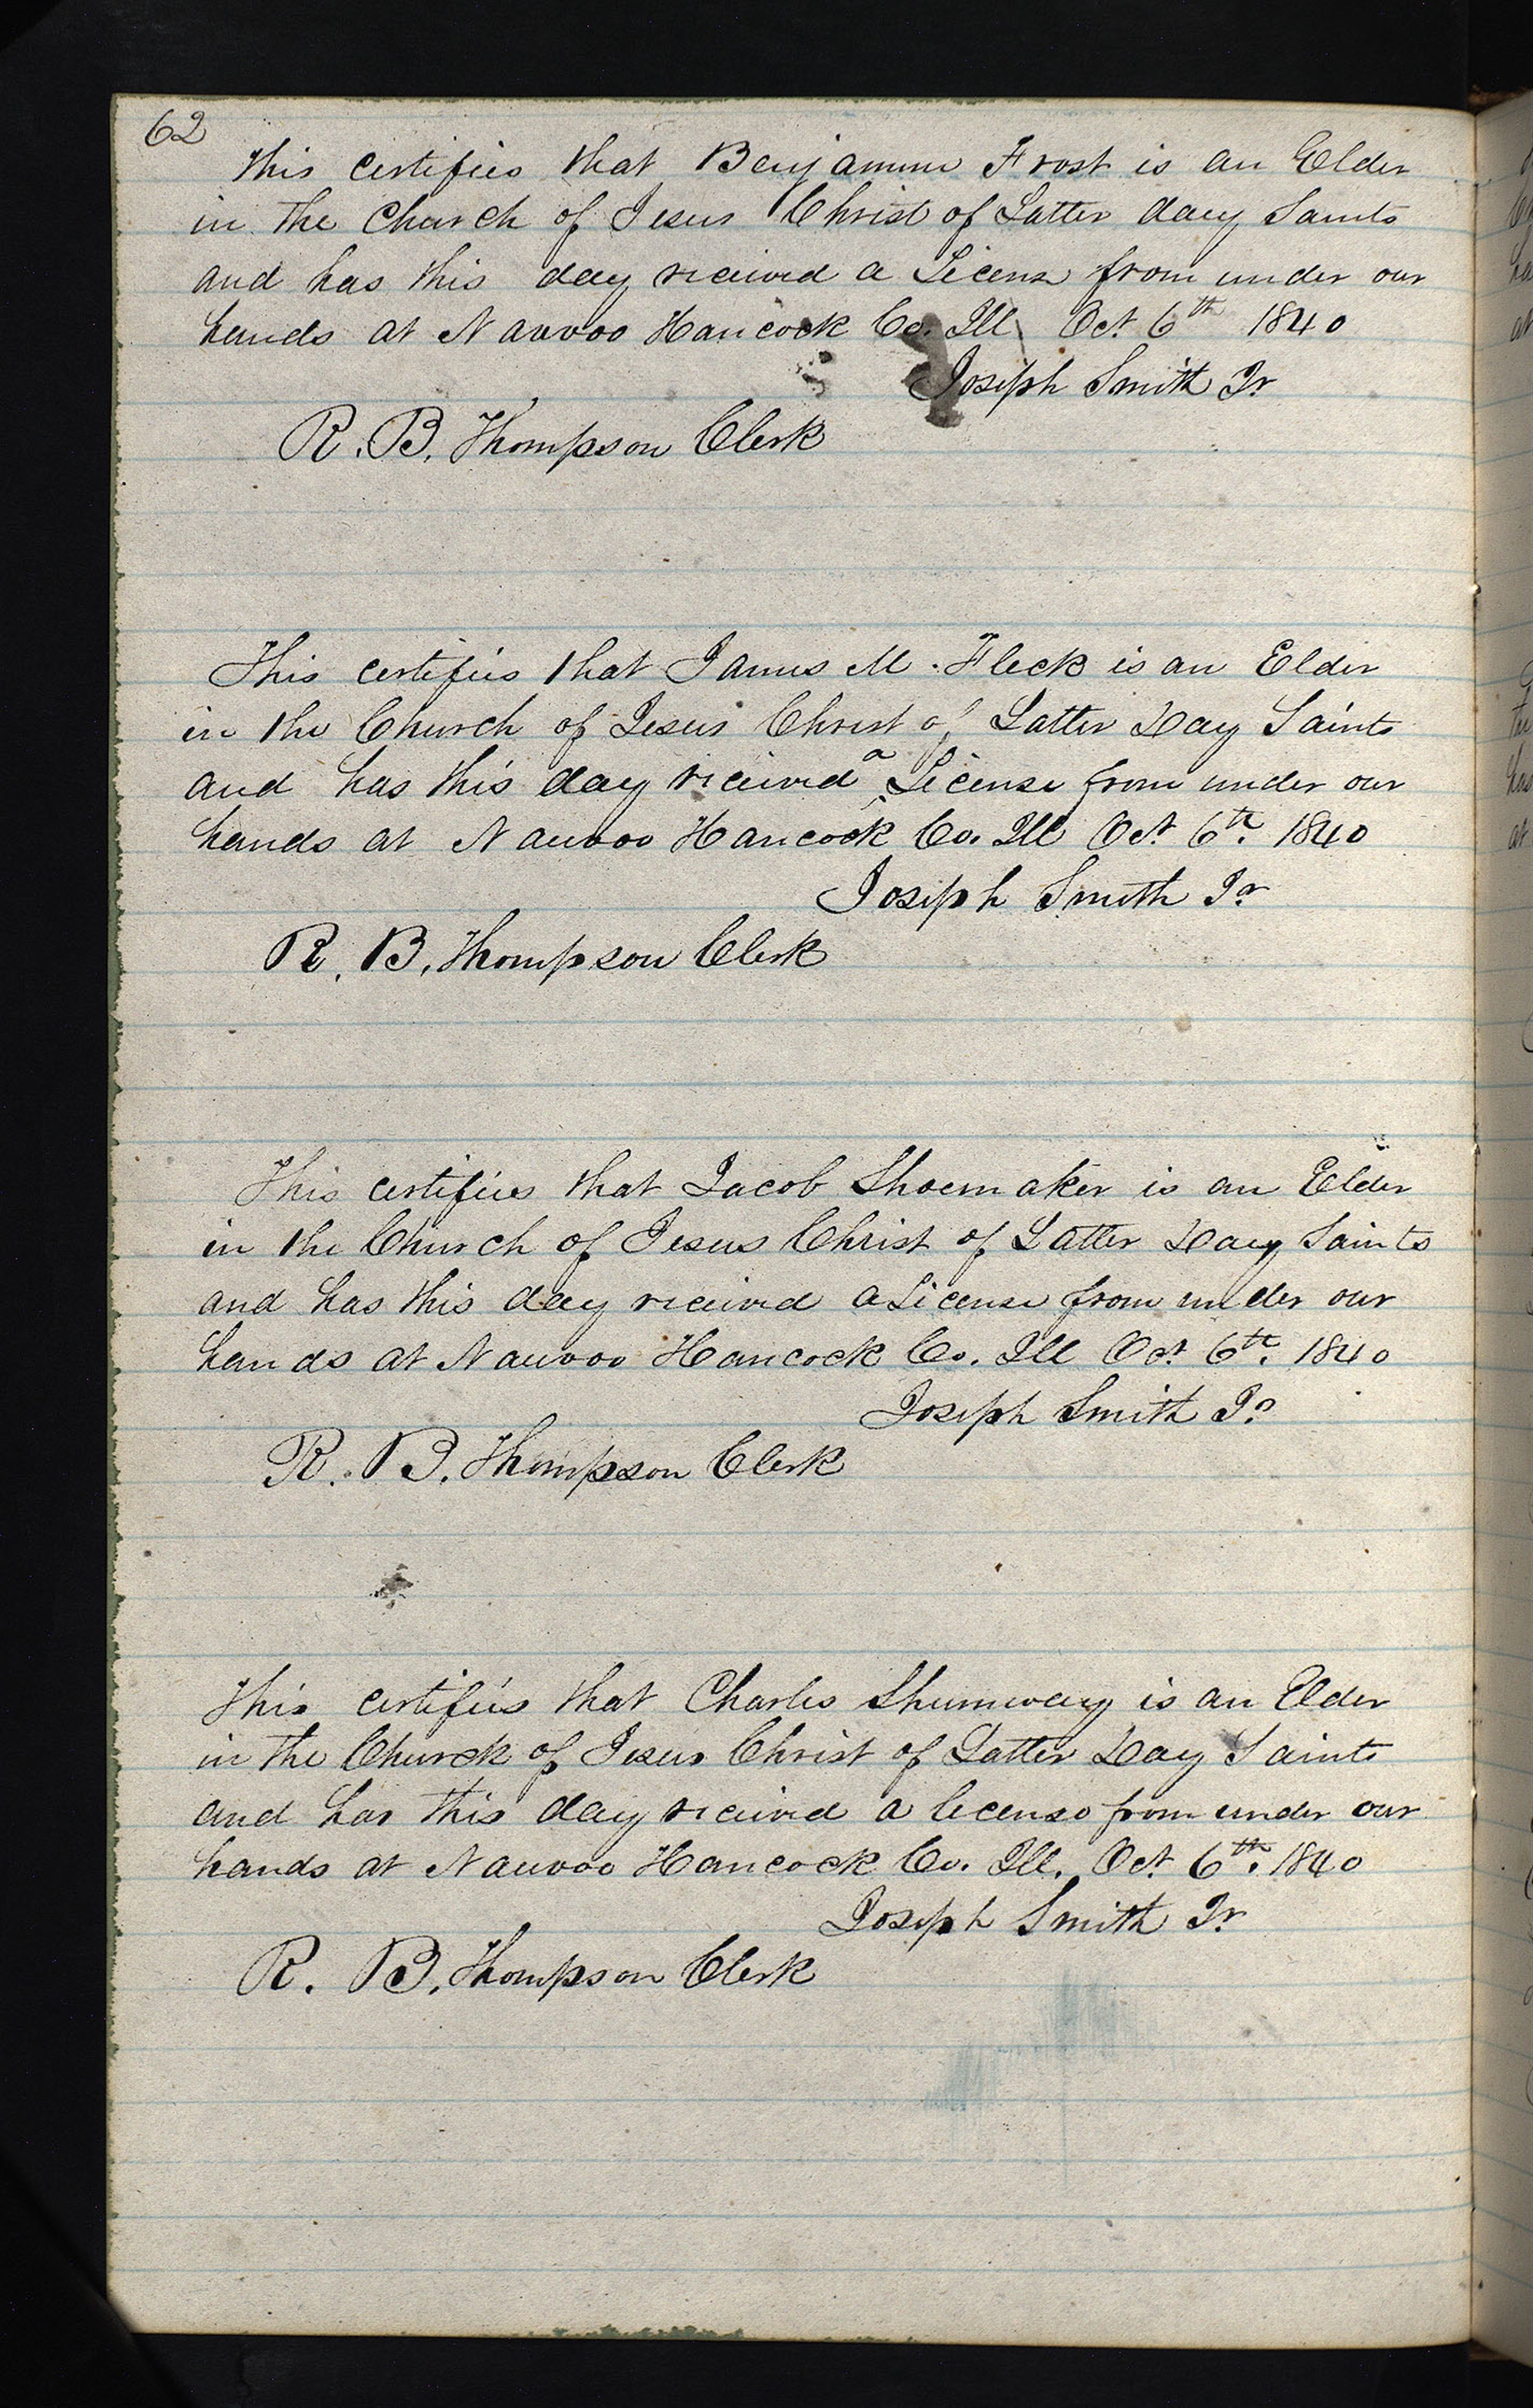 62
This certifies that Benjamine Frost is an Elder
in the Church of Jesus Christ of Latter day Saints
and has this day received a License from under our
hands at Nauvoo Hancock Co. Ill Oct 6th 1840
Joseph Smith Jr
R. B. Thompson Clerk
This certifies that James M. Fleck is an Elder
in the Church of Jesus Christ of Latter Day Saints
and has this day received a License from under our
hands at Nauvoo Hancock Co. Ill Oct 6th. 1840
Joseph Smith Jr
R. B. Thompson Clerk
This certifies that Jacob Shoemaker is an Elder
in the Church of Jesus Christ of Latter Day Saints
and has this day received a License from under our
hands at Nauvoo Hancock Co. Ill Oct 6th. 1840
Joseph Smith Jr
R. B. Thompson Clerk
This certifies that Charles Shumway is an Elder
in the Church of Jesus Christ of Latter Day Saints
and has this day received a license from under our
hands at Nauvoo Hancock Co. Ill. Oct 6th. 1840
Joseph Smith Jr
R. B. Thompson Clerk